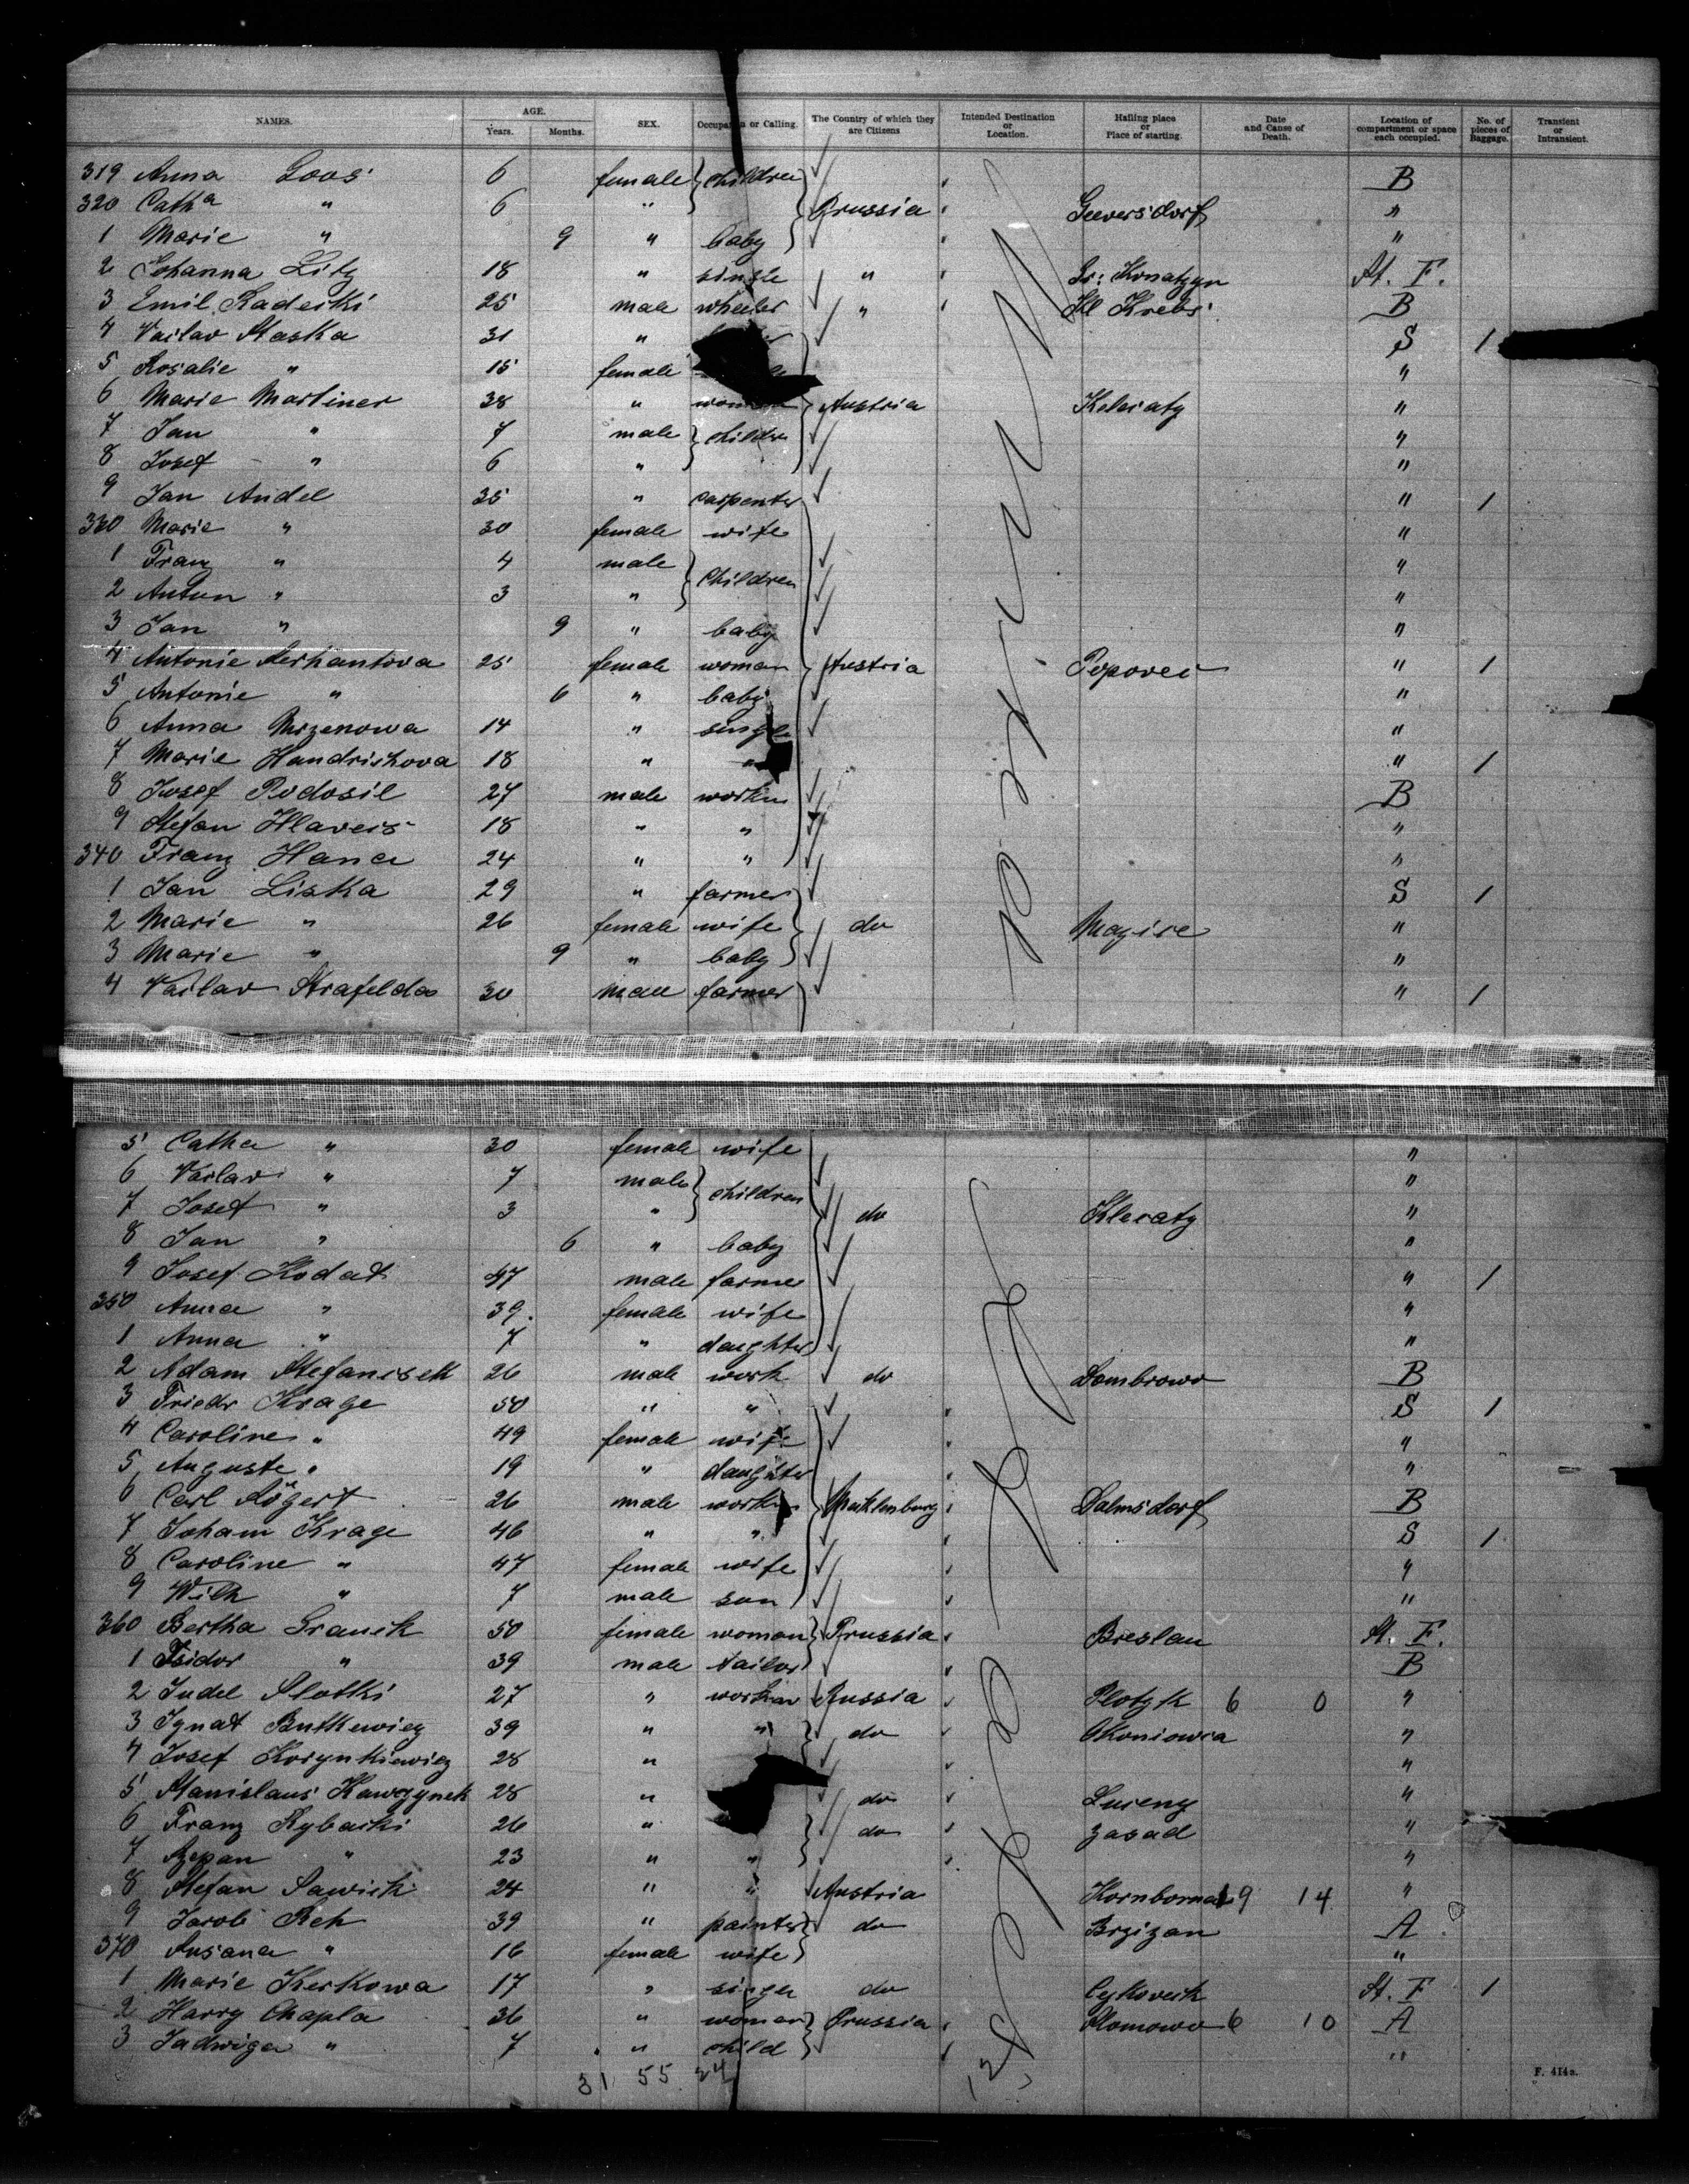 NAMES. AGE. Years. Months. SEX. Occupation or Calling. The Country of which they are Citizens Intended Destination or Location. Hailing place or Place of starting. Date and Cause of Death. Location of compartment or space each occupied. No. of pieces of Baggage. Transient or Intransient.
319 Anna Loos 6 female children B
320 Cath a " 6 " Prussia Geversdorf "
1 Marie " 9 " baby "
2 Johanna Litz 18 " single " Gr: Konatzyn St. F.
3 Emil Radeiki 25 male wheeler " Kl Krebs B
4 Vaclav Staska 31 " S 1
5 Rosalie " 15 female "
6 Marie Martiner 38 " woman Austria Keleraty "
7 Jan " 7 male children "
8 Josef " 6 " "
9 Jan Andel 35 " carpenter " 1
330 Marie " 30 female wife "
1 Franz " 4 male children "
2 Anton " 3 " "
3 Jan " 9 " baby "
4 Antonie Serhantova 25 female woman Austria Popovec " 1
5 Antonie " 6 " baby "
6 Anna Mrzenowa 14 " single "
7 Marie Handrichova 18 " " " 1
8 Josef Podosil 27 male workm B
9 Stefan Hlaveis 18 " " "
340 Franz Hana 24 " " "
1 Jan Liska 29 " farmer S 1
2 Marie " 26 female wife do Magise "
3 Marie " 9 " baby "
4 Vaclav Strafelda 30 male farmer " 1
5 Catha " 30 female wife "
6 Vaclav " 7 male children "
7 Josef " 3 " do Kleraty "
8 Jan " 6 " baby "
9 Josef Kodat 47 male farmer " 1
350 Anna " 39. female wife "
1 Anna " 7 " daughter "
2 Adam Stefanisek 26 male work do Dombrowo B
3 Friedr Krage 50 " " S 1
4 Caroline " 49 female wife "
5 Auguste " 19 " daughter "
6 Carl Rögert 26 male workm Mecklenburg Dalmsdorf B
7 Joham Krage 46 " " S 1
8 Caroline " 47 female wife "
9 Wilh " 7 male son "
360 Bertha Granik 50 female woman Prussia Breslau St. F.
1 Isidor " 39 male tailor B
2 Judel Slotki 27 " workman Russia Plotzk 6 0 "
3 Ignat Butkewicz 39 " " do Okoniowca "
4 Josef Korynkiewicz 28 " "
5 Stanislaus Kawczynek 28 " do Luceny "
6 Franz Rybacki 26 " do Zasad "
7 Szepan " 23 " " "
8 Stefan Sawick 24 " " Austria 19 14 "
9 Jacob Reh 39 " painter do Brzizan A
370 Susana " 16 female wife "
1 Marie Kerkowa 17 " single do St. F 1
2 Harry Chapla 36 " woman Prussia Slomowo 6 10 A
3 Jadwiga " 7 " child "
31 55 24
F. 414a.